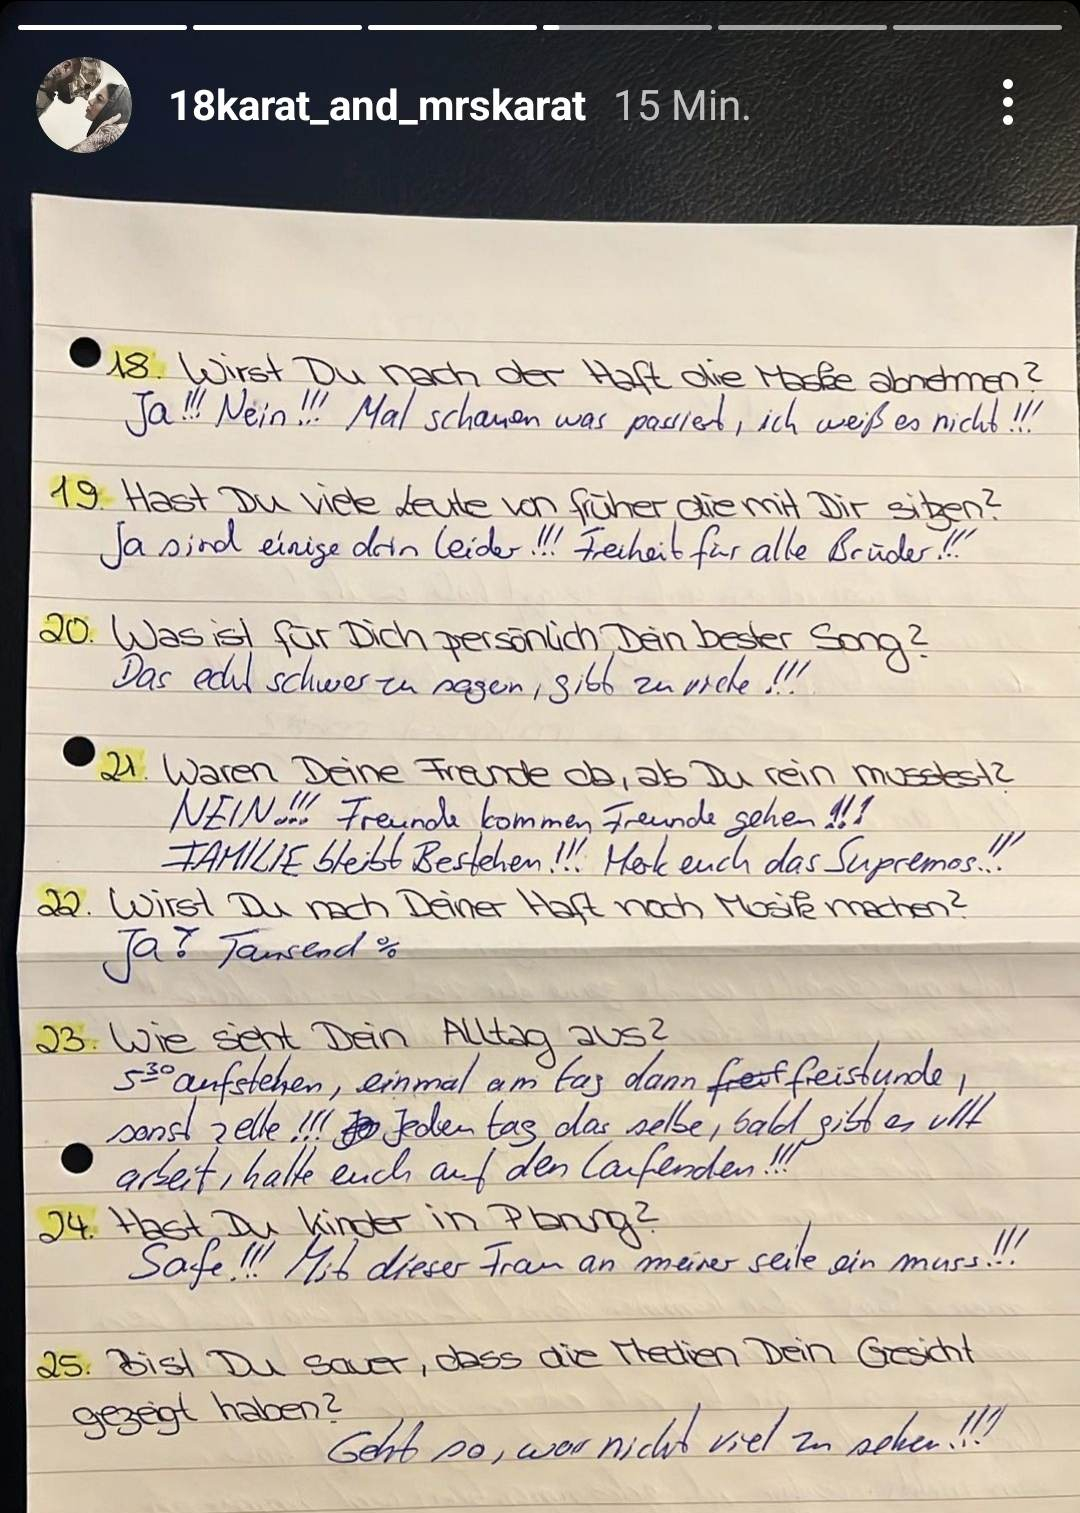 18karat_and_mrskarat 15 Min.
18. Wirst Du nach der Haft die Maske abnehmen?
Ja!!! Nein!!! Mal schauen was passiert, ich weiß es nicht!!!
19. Hast Du viele Leute von früher die mit Dir sitzen?
Ja sind einige drin leider!!! Freiheit für alle Brüder!!!
20. Was ist für Dich persönlich Dein bester Song?
Das echt schwer zu sagen, gibt zu viele!!!
21. Waren Deine Freunde da, als Du rein musstest?
NEIN!!! Freunde kommen, Freunde gehen!!!
FAMILIE bleibt Bestehen!!! Merk euch das Supremos!!!
22. Wirst Du nach Deiner Haft noch Musik machen?
Ja? Tausend %
23. Wie sieht Dein Alltag aus?
5³⁰ aufstehen, einmal am tag dann freistunde,
sonst zelle!!! Jeden tag das selbe, bald gibt es vllt
arbeit, halte euch auf den laufenden!!!
24. Hast Du Kinder in Planung?
Safe!!! Mit dieser Frau an meiner seite ein muss!!!
25. Bist Du sauer, dass die Medien Dein Gesicht
gezeigt haben?
Geht so, war nicht viel zu sehen!!!